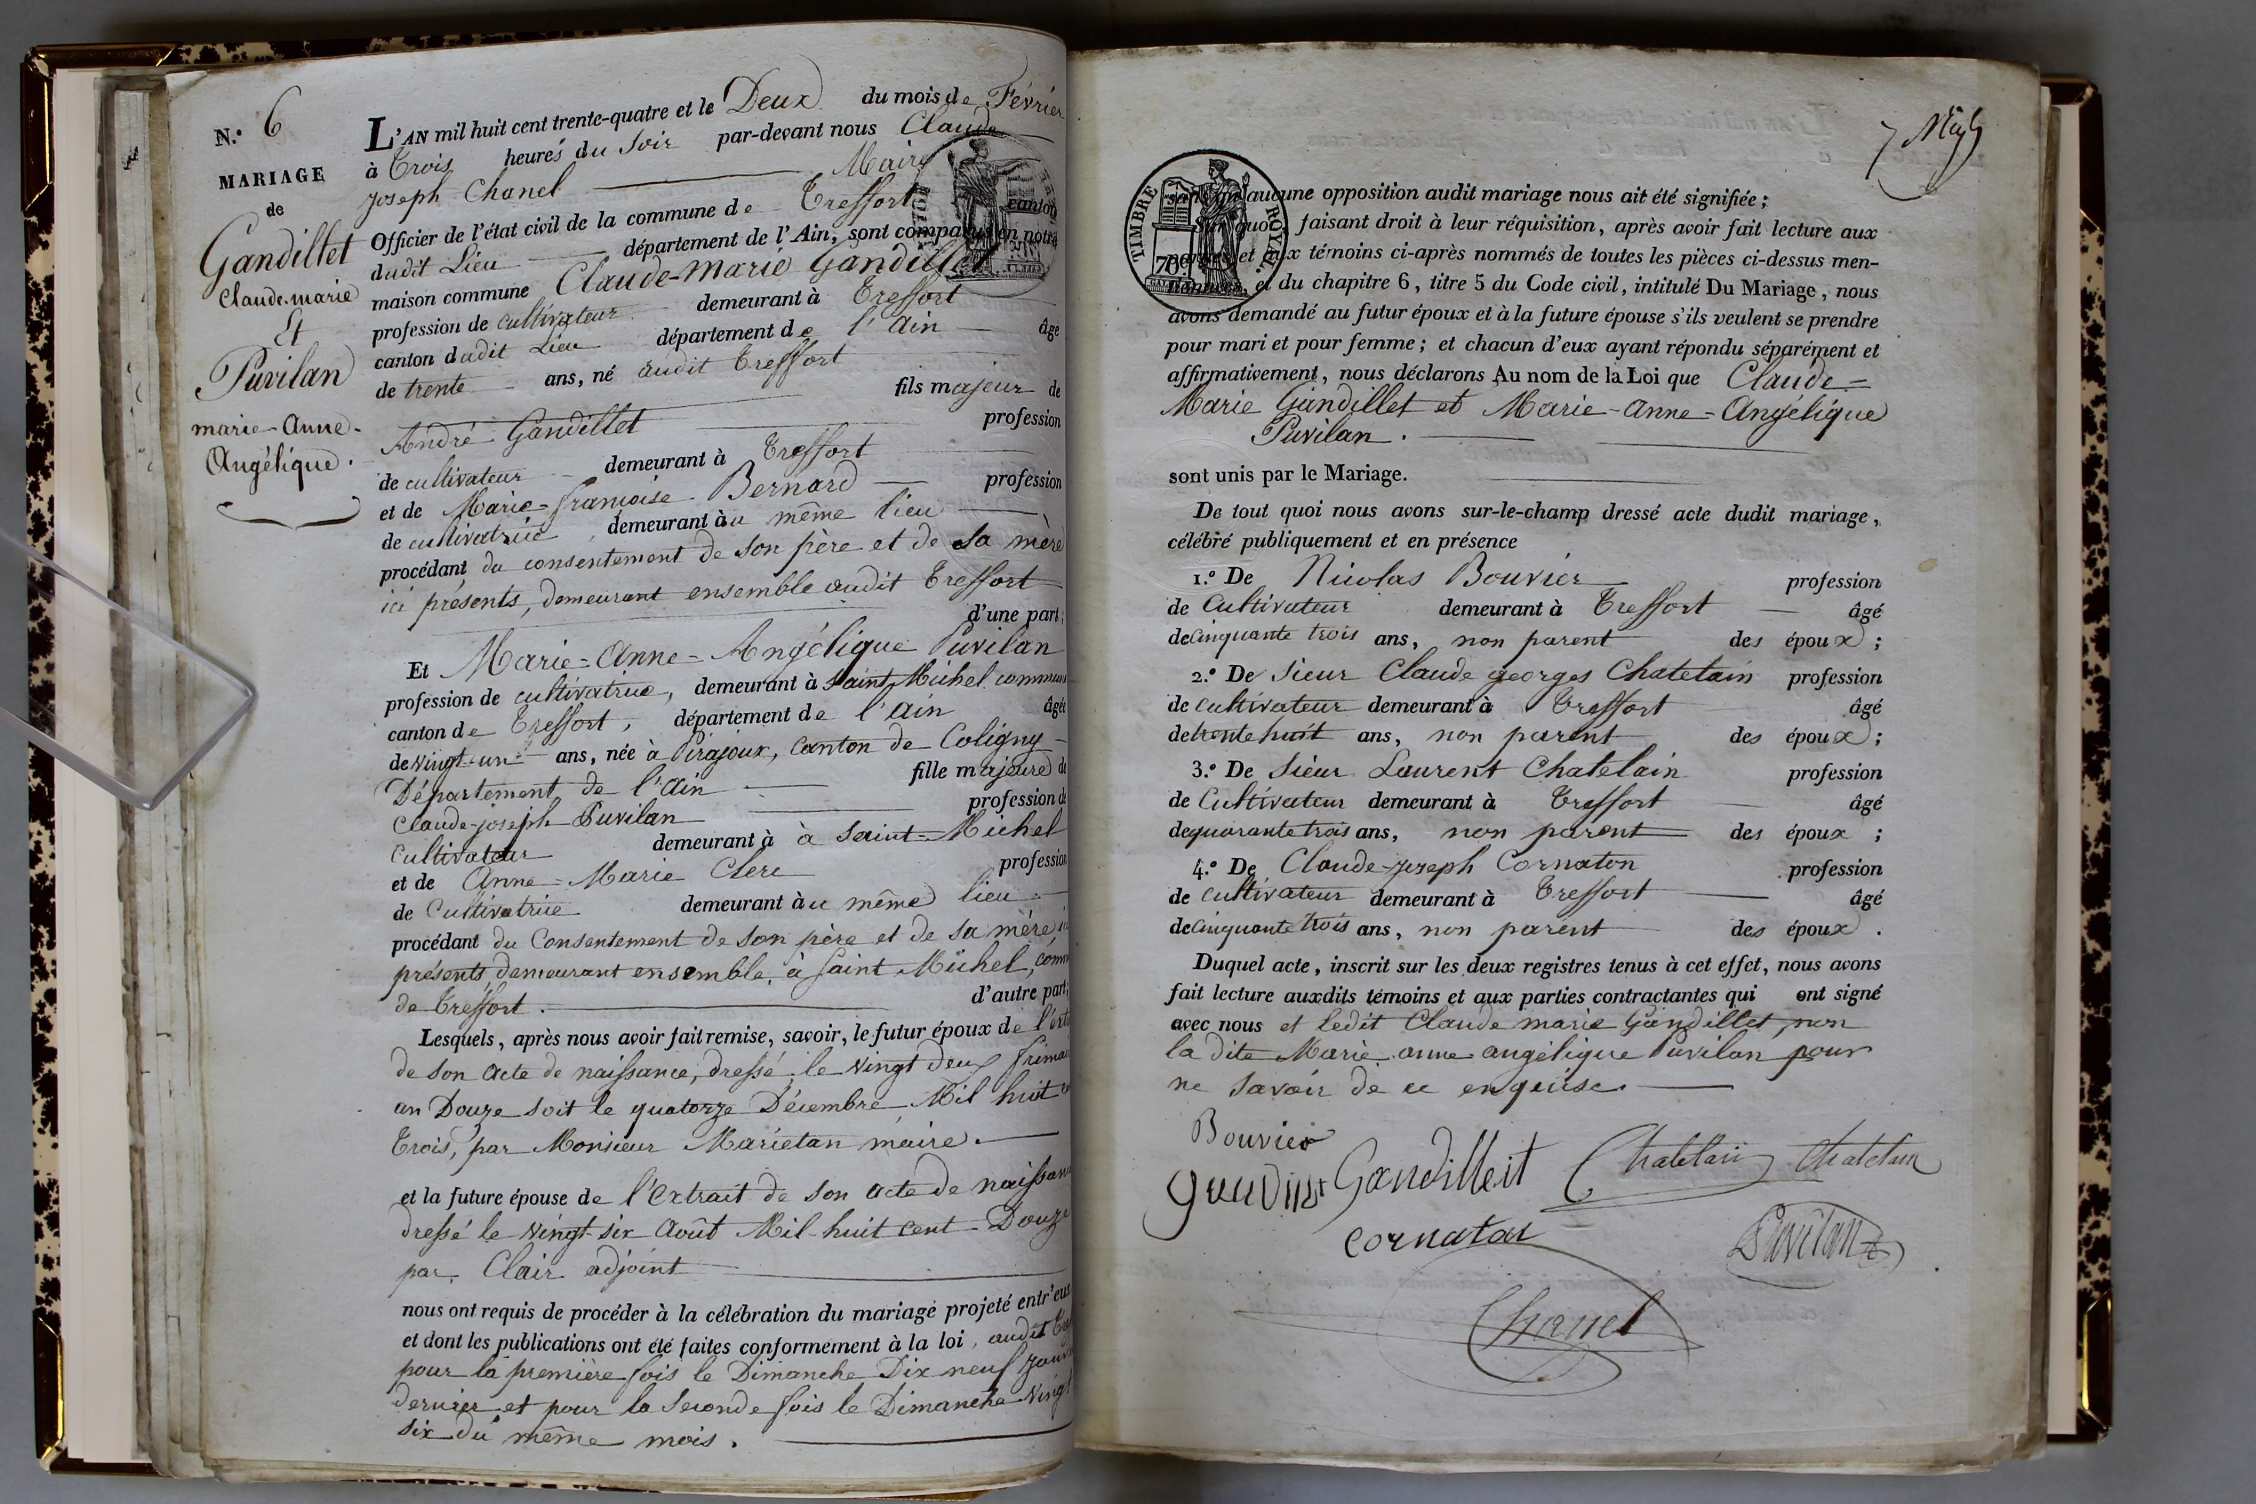 N.º 6
MARIAGE
de
Gandillet
Claude-marie
Et
Puvilan
marie-Anne-
Angélique.
L'AN mil huit cent trente-quatre et le Deux du mois de Février
à Trois heures du Soir par-devant nous Claude
Joseph Chanel Maire
Officier de l'état civil de la commune de Treffort canton
dudit Lieu département de l'Ain, sont comparus en notre
maison commune Claude-Marie Gandillet
profession de cultivateur demeurant à Treffort
canton dudit Lieu département de l'Ain âgé
de trente ans, né audit Treffort
fils majeur de
André Gandillet profession
de cultivateur demeurant à Treffort
et de Marie-françoise Bernard profession
de cultivatrice, demeurant au même lieu
procédant du consentement de son père et de sa mère
ici présents, demeurant ensemble audit Treffort
d'une part;
Et Marie-Anne-Angélique Puvilan
profession de cultivatrice, demeurant à Saint Michel commune
canton de Treffort, département de l'Ain âgée
de vingt-un ans, née à Pirajoux, canton de Coligny
Département de l'Ain fille majeure de
Claude-joseph Puvilan profession de
Cultivateur demeurant à à Saint-Michel
et de Anne-Marie Clerc profession
de Cultivatrice demeurant au même lieu
procédant du Consentement de son père et de sa mère ici
présents, demeurant ensemble, à Saint Michel, comm
de Treffort. d'autre part;
Lesquels, après nous avoir fait remise, savoir, le futur époux de l'ext
de son acte de naissance, dressé le vingt deux frima
an Douze soit le quatorze Décembre Mil huit c
Trois, par Monsieur Marietan maire.
et la future épouse de l'extrait de son acte de naissan
dressé le vingt-six Août Mil-huit cent-Douze
par Clair adjoint
nous ont requis de procéder à la célébration du mariage projeté entr'eux
et dont les publications ont été faites conformement à la loi, audit Tre
pour la première fois le Dimanche Dix neuf Janv
dernier et pour la seconde fois le Dimanche vingt
six du même mois.
TIMBRE ROYAL.
70
sans qu'aucune opposition audit mariage nous ait été signifiée;
Sur quoi, faisant droit à leur réquisition, après avoir fait lecture aux
parties et aux témoins ci-après nommés de toutes les pièces ci-dessus men-
tionnées, et du chapitre 6, titre 5 du Code civil, intitulé Du Mariage, nous
avons demandé au futur époux et à la future épouse s'ils veulent se prendre
pour mari et pour femme; et chacun d'eux ayant répondu séparément et
affirmativement, nous déclarons Au nom de la Loi que Claude-
Marie Gandillet et Marie-Anne-Angélique
Puvilan.
sont unis par le Mariage.
De tout quoi nous avons sur-le-champ dressé acte dudit mariage,
célébré publiquement et en présence
1.º De Nicolas Bouvier profession
de Cultivateur demeurant à Treffort âgé
de cinquante trois ans, non parent des époux;
2.º De Sieur Claude georges Chatelain profession
de cultivateur demeurant à Treffort âgé
de trente huit ans, non parent des époux;
3.º De Sieur Laurent Chatelain profession
de Cultivateur demeurant à Treffort âgé
de quarante trois ans, non parent des époux;
4.º De Claude-joseph Cornaton profession
de cultivateur demeurant à Treffort âgé
de cinquante trois ans, non parent des époux.
Duquel acte, inscrit sur les deux registres tenus à cet effet, nous avons
fait lecture auxdits témoins et aux parties contractantes qui ont signé
avec nous et ledit Claude marie Gandillet, non
la dite Marie anne angélique Puvilan pour
ne savoir de ce enquise.
Bouvier
Gandilleit Chatelain Chatelain
cornaton
Puvilan
Chanel